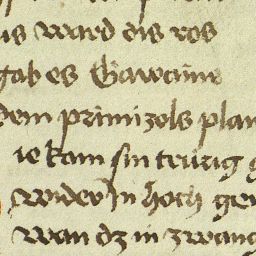 us ward dis ros
gab es Gawane
dem primizols plan
ie kam sin trurig g
wider in hoch ge
wan dz in zwang